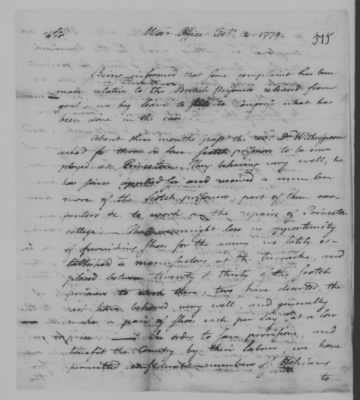 Sir, War Office Octr. 2. 1779. 515
Being informed that some complaint has been
made relative to the British Prisoners released from
goal, we beg leave to to Congress what has
been done in the case.
About three months past the revd. Dr. Witherspoon
ask'd for three or four Scotch prisoners to be em-
ployed at Princeton. They behaving very well, he
has since applied for and received a number
more of the Scotch prisoners, part of them car-
penters to work on the repairs of Princeton
college. That we might lose no opportunity
of furnishing Shoes for the army we lately es-
tablished a manufactory at Newark, and
placed between twenty & thirty of the Scotch
prisoners to work there, two have deserted the
rest have behaved very well and generally
make a pair of Shoes each per day, at a low
In order to save provisions, and
benefit the Country by their labour, we have
permitted numbers of Hessians
to